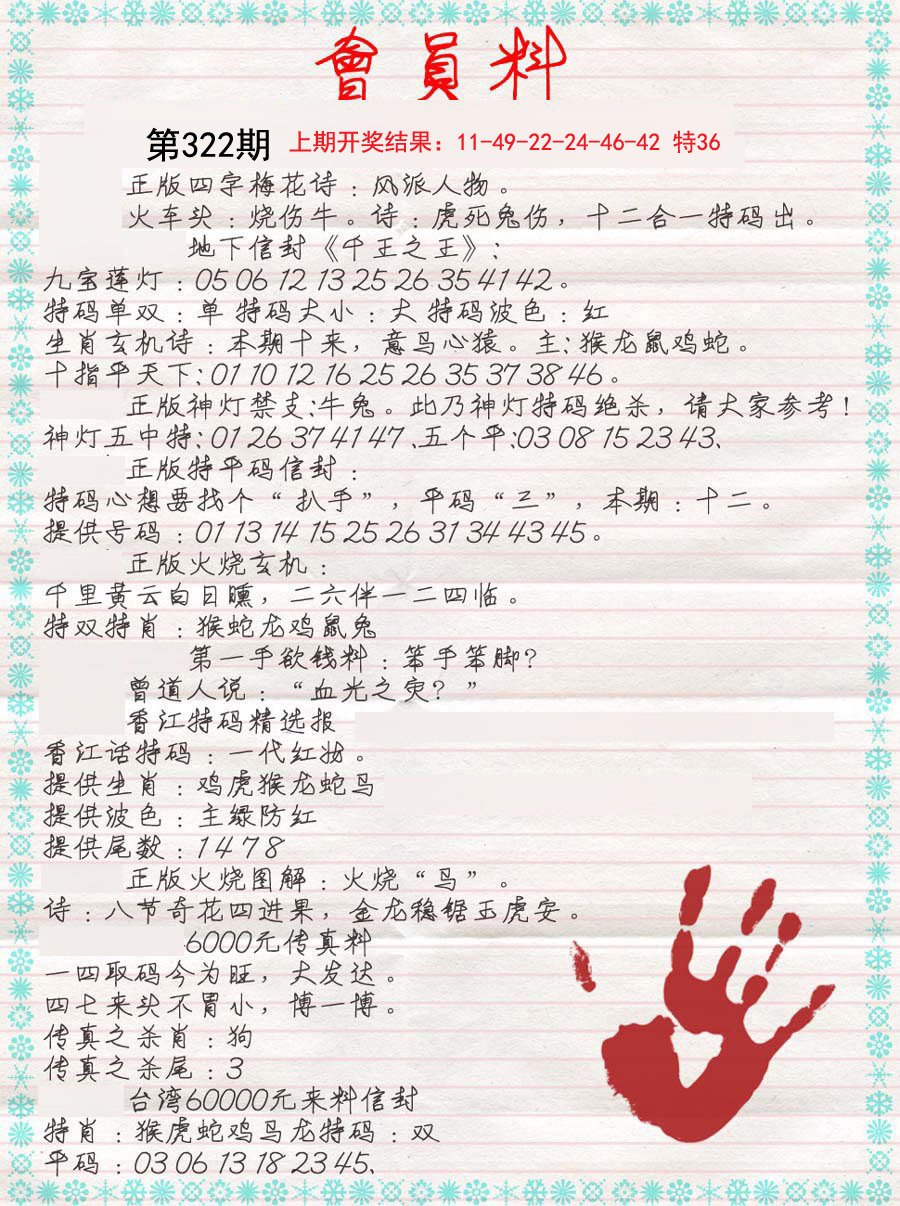 會員料
第322期 上期开奖结果：11-49-22-24-46-42 特36
正版四字梅花诗：风派人物。
火车头：烧伤牛。诗：虎死兔伤，十二合一特码出。
地下信封《千王之王》：
九宝莲灯：05 06 12 13 25 26 35 41 42。
特码单双：单 特码大小：大 特码波色：红
生肖玄机诗：本期十来，意马心猿。主：猴龙鼠鸡蛇。
十指平天下：01 10 12 16 25 26 35 37 38 46。
正版神灯禁支：牛兔。此乃神灯特码绝杀，请大家参考！
神灯五中特：01 26 37 41 47、五个平：03 08 15 23 43、
正版特平码信封：
特码心想要找个“扒手”，平码“三”，本期：十二。
提供号码：01 13 14 15 25 26 31 34 43 45。
正版火烧玄机：
千里黄云白日曛，二六伴一二四临。
特双特肖：猴蛇龙鸡鼠兔
第一手欲钱料：笨手笨脚？
曾道人说：“血光之灾？”
香江特码精选报
香江话特码：一代红妆。
提供生肖：鸡虎猴龙蛇马
提供波色：主绿防红
提供尾数：1 4 7 8
正版火烧图解：火烧“马”。
诗：八节奇花四进果，金龙稳锯玉虎安。
6000元传真料
一四取码今为旺，大发达。
四七来头不胃小，博一博。
传真之杀肖：狗
传真之杀尾：3
台湾60000元来料信封
特肖：猴虎蛇鸡马龙特码：双
平码：03 06 13 18 23 45、